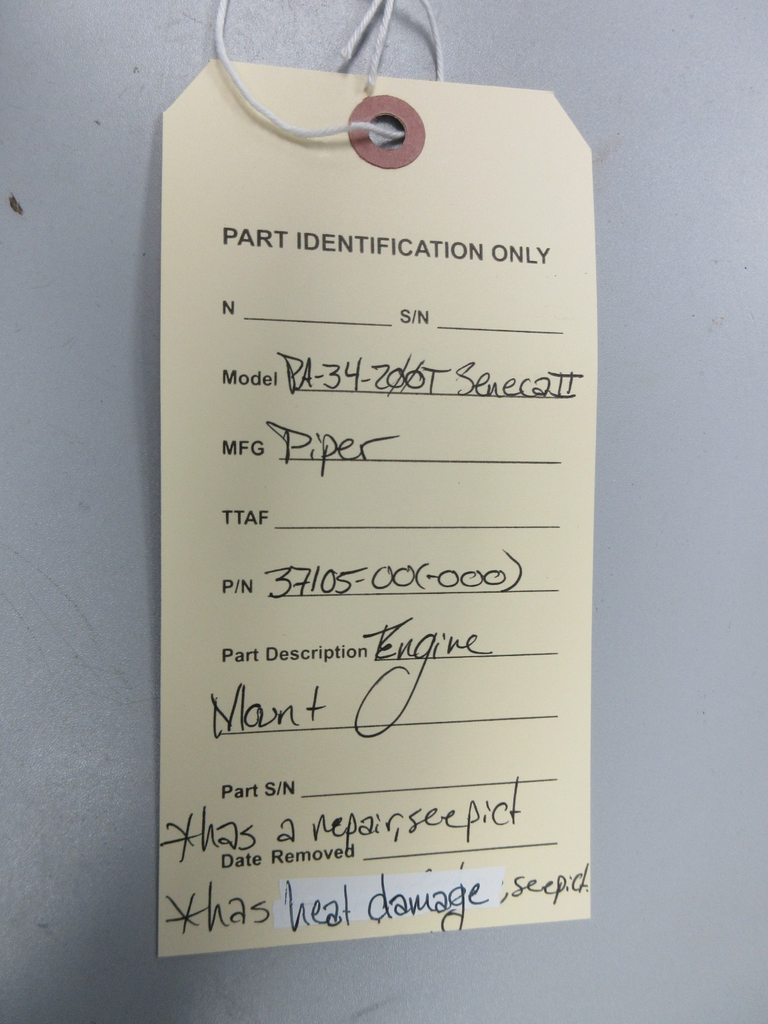 PART IDENTIFICATION ONLY
N S/N
Model PA-34-200T Seneca II
MFG Piper
TTAF
P/N 37105-00(-000)
Part Description Engine
Mount
Part S/N
*has a repair, see pict
Date Removed
*has heat damage, see pict.